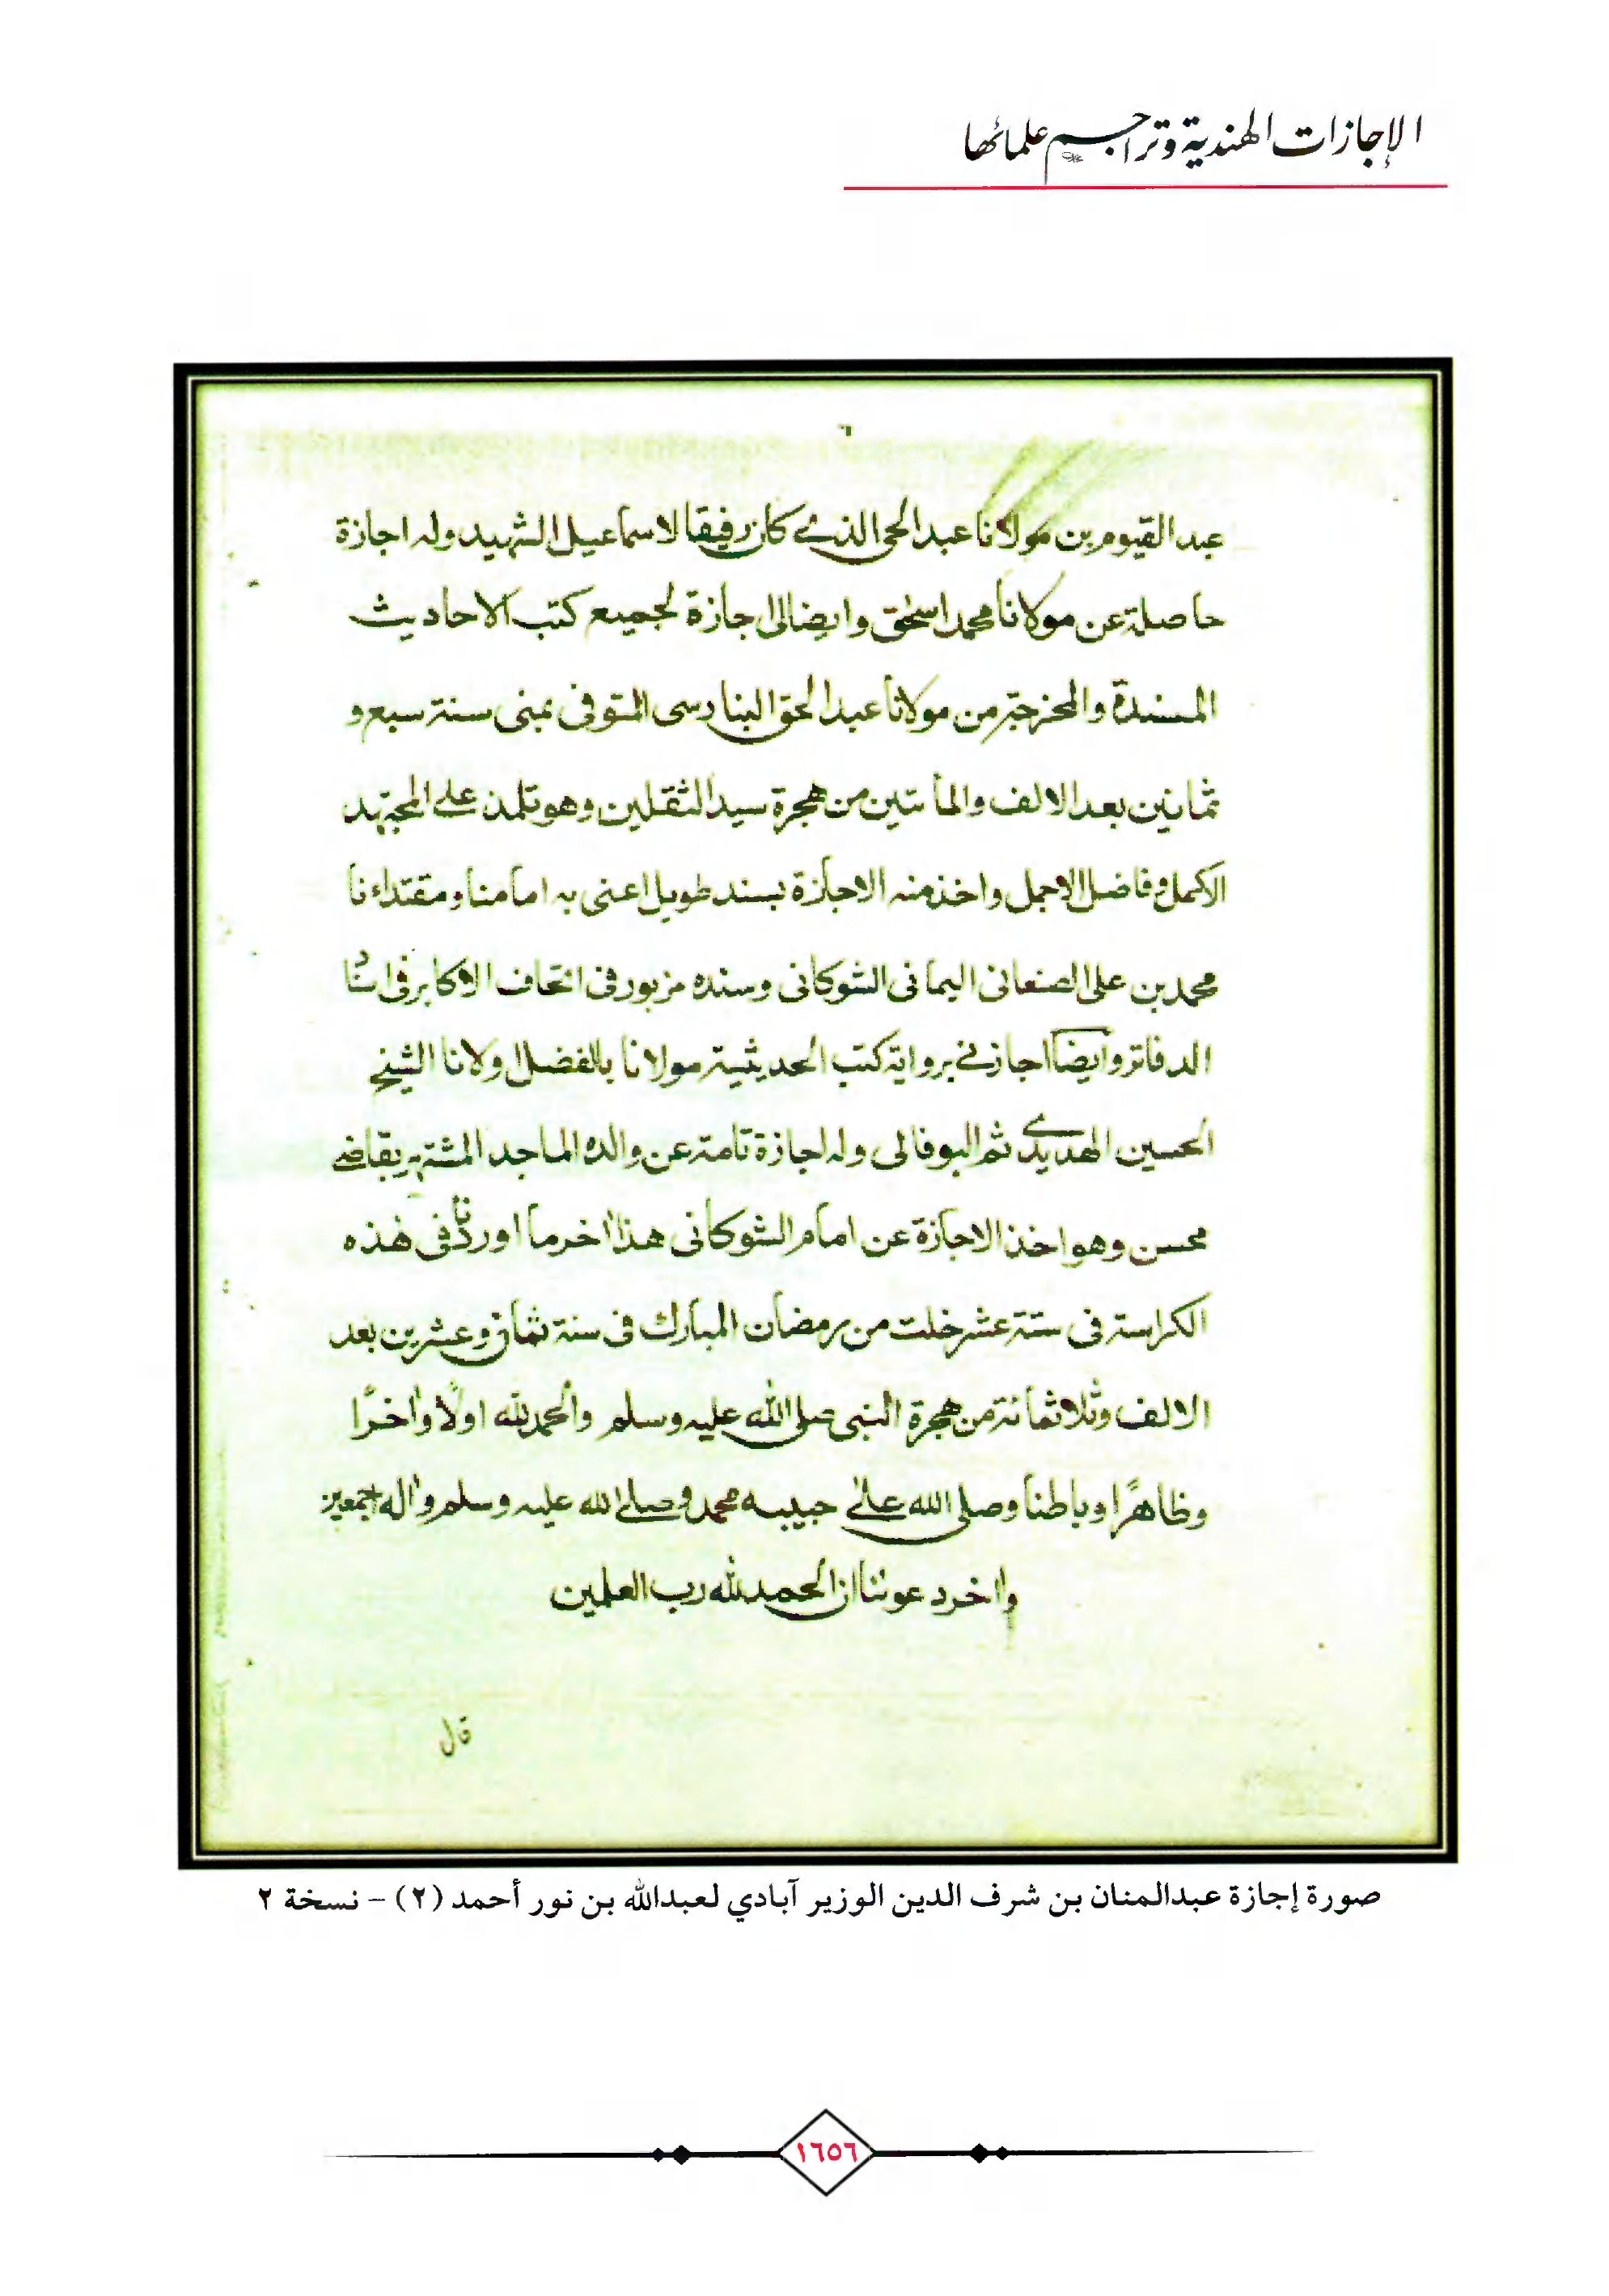 الإجازات الهندية وتراجم علمائها
٦
عبد القيوم بن مولانا عبد الحي الذي كان رفيقا لاسماعيل الشهيد وله اجازة
حاصلة عن مولانا محمد اسحٰق وايضا لي اجازة لجميع كتب الاحاديث
المسندة والمخرجة من مولانا عبد الحق البنارسى المتوفى بمنى سنة سبع و
ثمانين بعد الالف والمأتين من هجرة سيد الثقلين وهو تلمذ على المجتهد
الاكمل وفاضل الاجمل واخذ منه الاجازة بسند طويل اعنى به امامنا ومقتداءنا
محمد بن على الصنعانى اليمانى الشوكانى وسنده مزبور فى اتحاف الاكابر فى اسناد
الدفاتر وايضا اجازني برواية كتب الحديثية مولانا بالفضل اولانا الشيخ
الحسين الهديدي ثم البوفالى وله اجازة تامة عن والده الماجد المشتهر بقاضي
محسن وهو اخذ الاجازة عن امام الشوكانى هذا اٰخر ما اوردنا فى هٰذه
الكراسة فى ستة عشر خلت من رمضان المبارك فى سنة ثمان وعشرين بعد
الالف وثلاثمائة من هجرة النبى صلى الله عليه وسلم والحمد لله اولًا واٰخرًا
وظاهرًا وباطنا وصلى الله على حبيبه محمد وصلى الله عليه وسلم واٰله اجمعين
واٰخر دعوٰنا ان الحمد لله رب العلمين
قال
صورة إجازة عبدالمنان بن شرف الدين الوزير آبادي لعبدالله بن نور أحمد (٢) – نسخة ٢
١٦٥٦